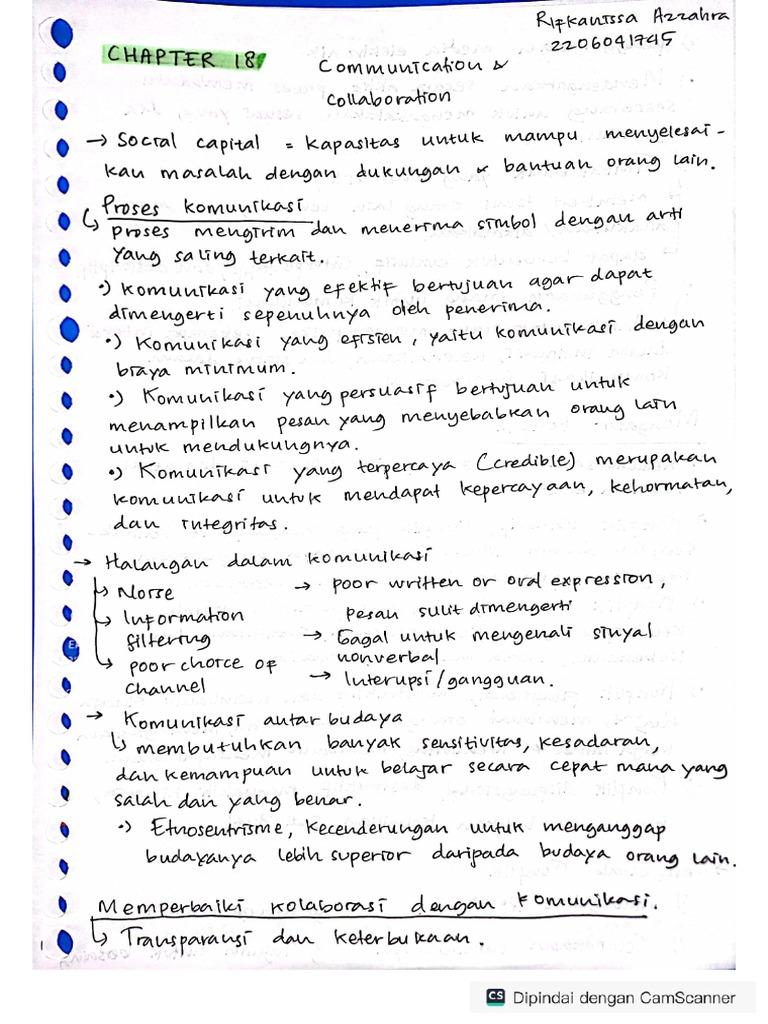 Rifkanissa Azzahra
2206041745
CHAPTER 18
Communication &
Collaboration
→ Social capital = kapasitas untuk mampu menyelesai-
kan masalah dengan dukungan & bantuan orang lain.
Proses komunikasi
↳ proses mengirim dan menerima simbol dengan arti
yang saling terkait.
•) komunikasi yang efektif bertujuan agar dapat
dimengerti sepenuhnya oleh penerima.
•) Komunikasi yang efisien, yaitu komunikasi dengan
biaya minimum.
•) Komunikasi yang persuasif bertujuan untuk
menampilkan pesan yang menyebabkan orang lain
untuk mendukungnya.
•) Komunikasi yang terpercaya (credible) merupakan
komunikasi untuk mendapat kepercayaan, kehormatan,
dan integritas.
→ Halangan dalam komunikasi
↳ Noise → poor written or oral expression,
↳ Information pesan sulit dimengerti
filtering → Gagal untuk mengenali sinyal
↳ poor choice of nonverbal
channel → Interupsi/gangguan.
→ Komunikasi antar budaya
↳ membutuhkan banyak sensitivitas, kesadaran,
dan kemampuan untuk belajar secara cepat mana yang
salah dan yang benar.
•) Etnosentrisme, kecenderungan untuk menganggap
budayanya lebih superior daripada budaya orang lain.
Memperbaiki kolaborasi dengan komunikasi.
↳ Transparansi dan keterbukaan.
CS Dipindai dengan CamScanner